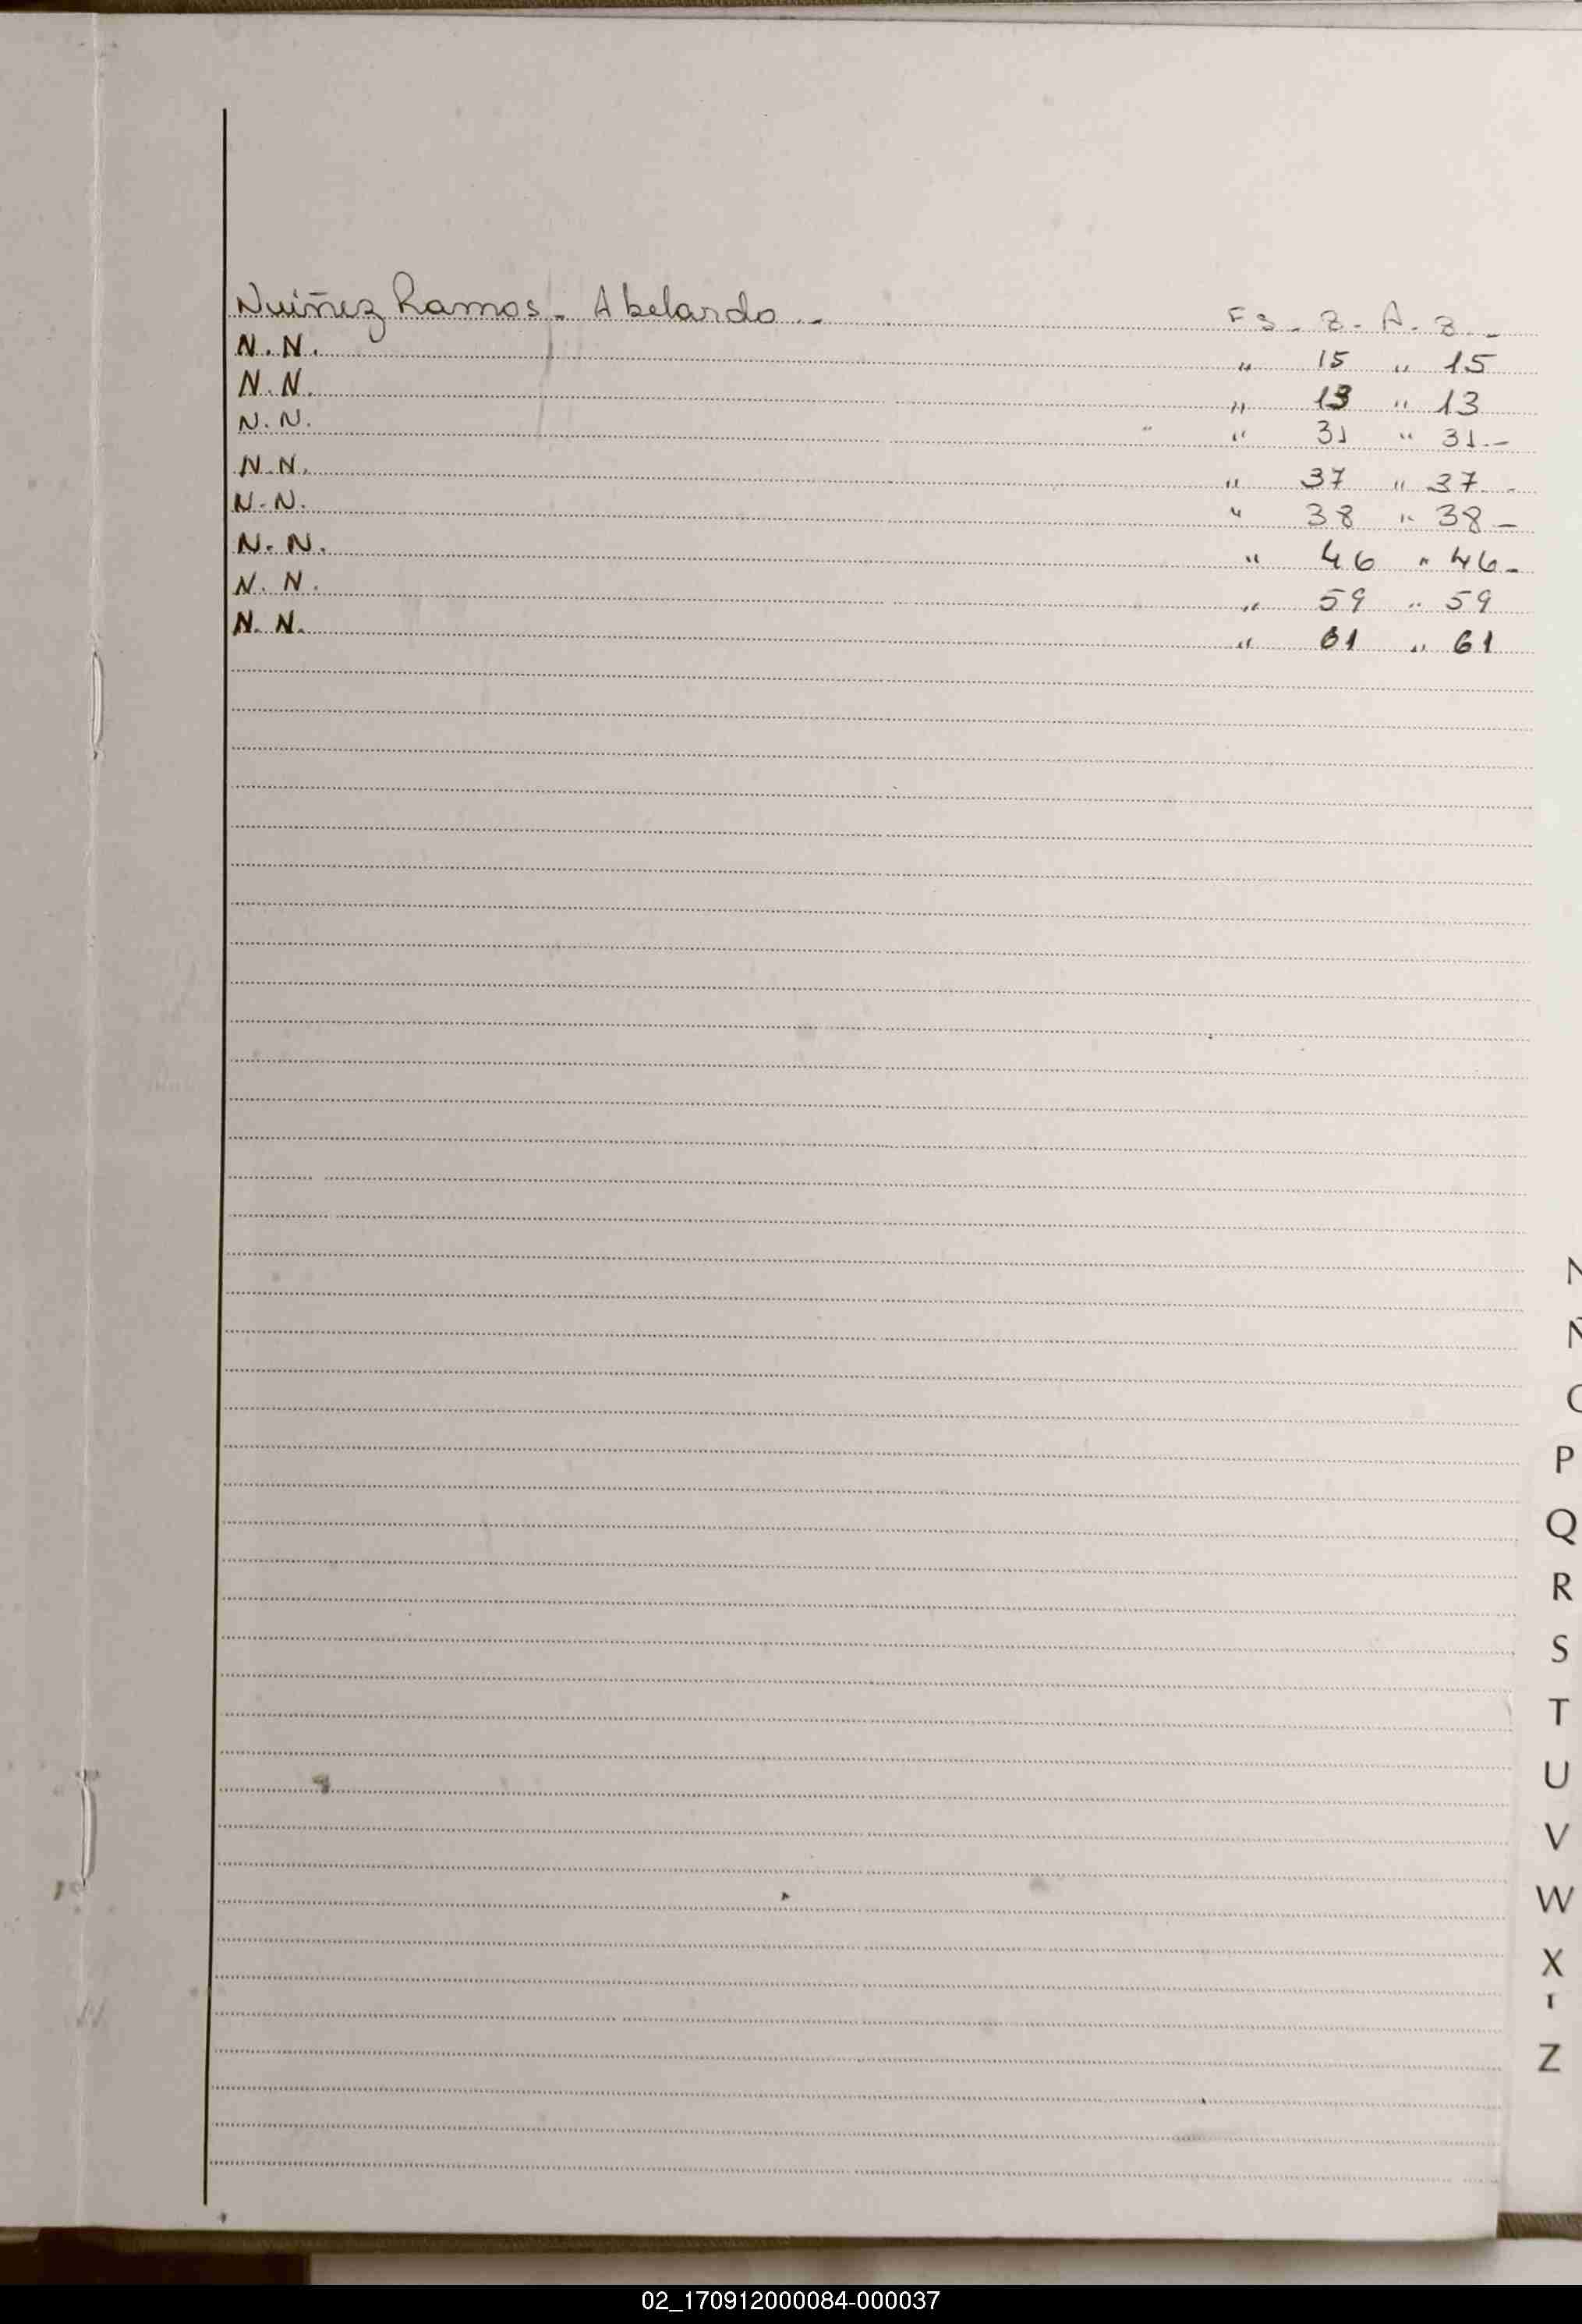 Nuñez Ramos - Abelardo - Fs - 8 - A - 8 -
N.N. " 15 " 15
N.N. " 13 " 13
N.N. " 31 " 31 -
N.N. " 37 " 37 -
N.N. " 38 " 38 -
N.N. " 46 " 46 -
N.N. " 59 " 59
N.N. " 61 " 61
N
Ñ
P
Q
R
S
T
U
V
W
X
Z
02_170912000084-000037